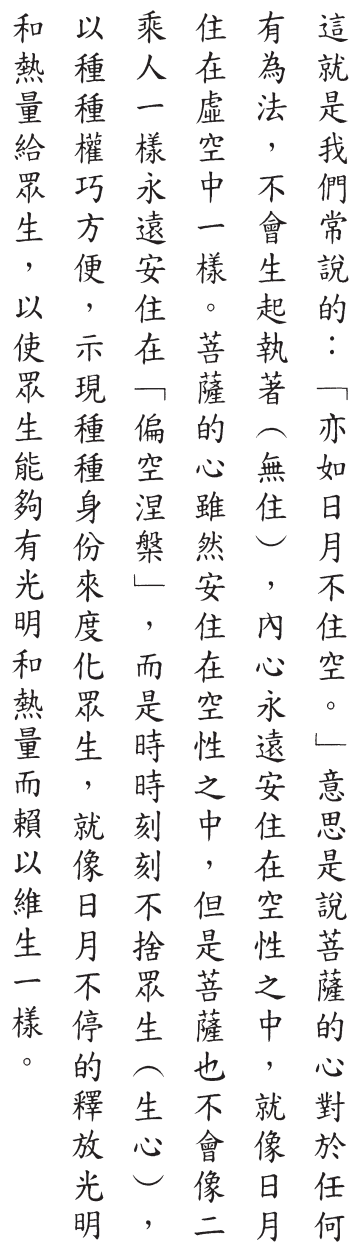 這就是我們常說的：「亦如日月不住空。」意思是說菩薩的心對於任何
有為法，不會生起執著（無住），內心永遠安住在空性之中，就像日月
住在虛空中一樣。菩薩的心雖然安住在空性之中，但是菩薩也不會像二
乘人一樣永遠安住在「偏空涅槃」，而是時時刻刻不捨眾生（生心），
以種種權巧方便，示現種種身份來度化眾生，就像日月不停的釋放光明
和熱量給眾生，以使眾生能夠有光明和熱量而賴以維生一樣。